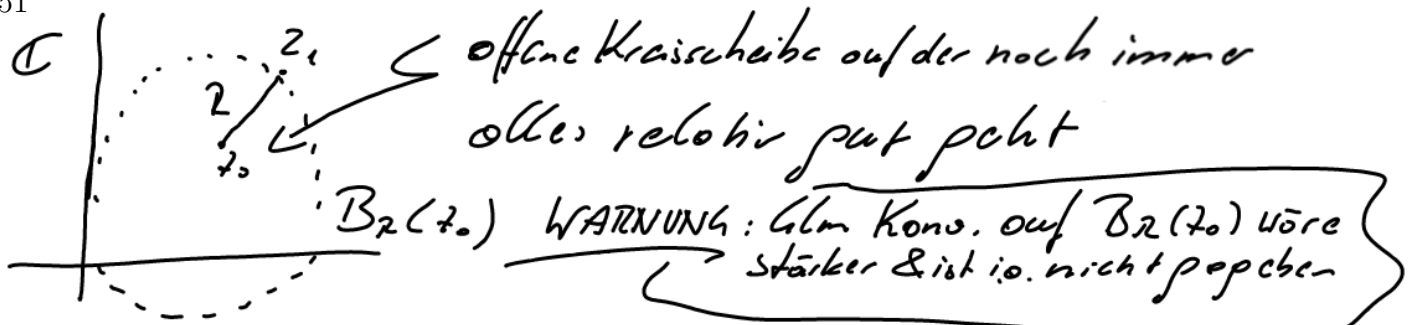 51
ℂ
z₁
R
z₀
offene Kreisscheibe auf der noch immer
alles relativ gut geht
B_R(z₀) WARNUNG: Glm Konv. auf B_R(z₀) wäre
stärker & ist i.a. nicht gegeben